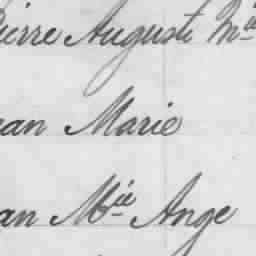 Pierre Auguste Mie
ean Marie
an Mie Ange